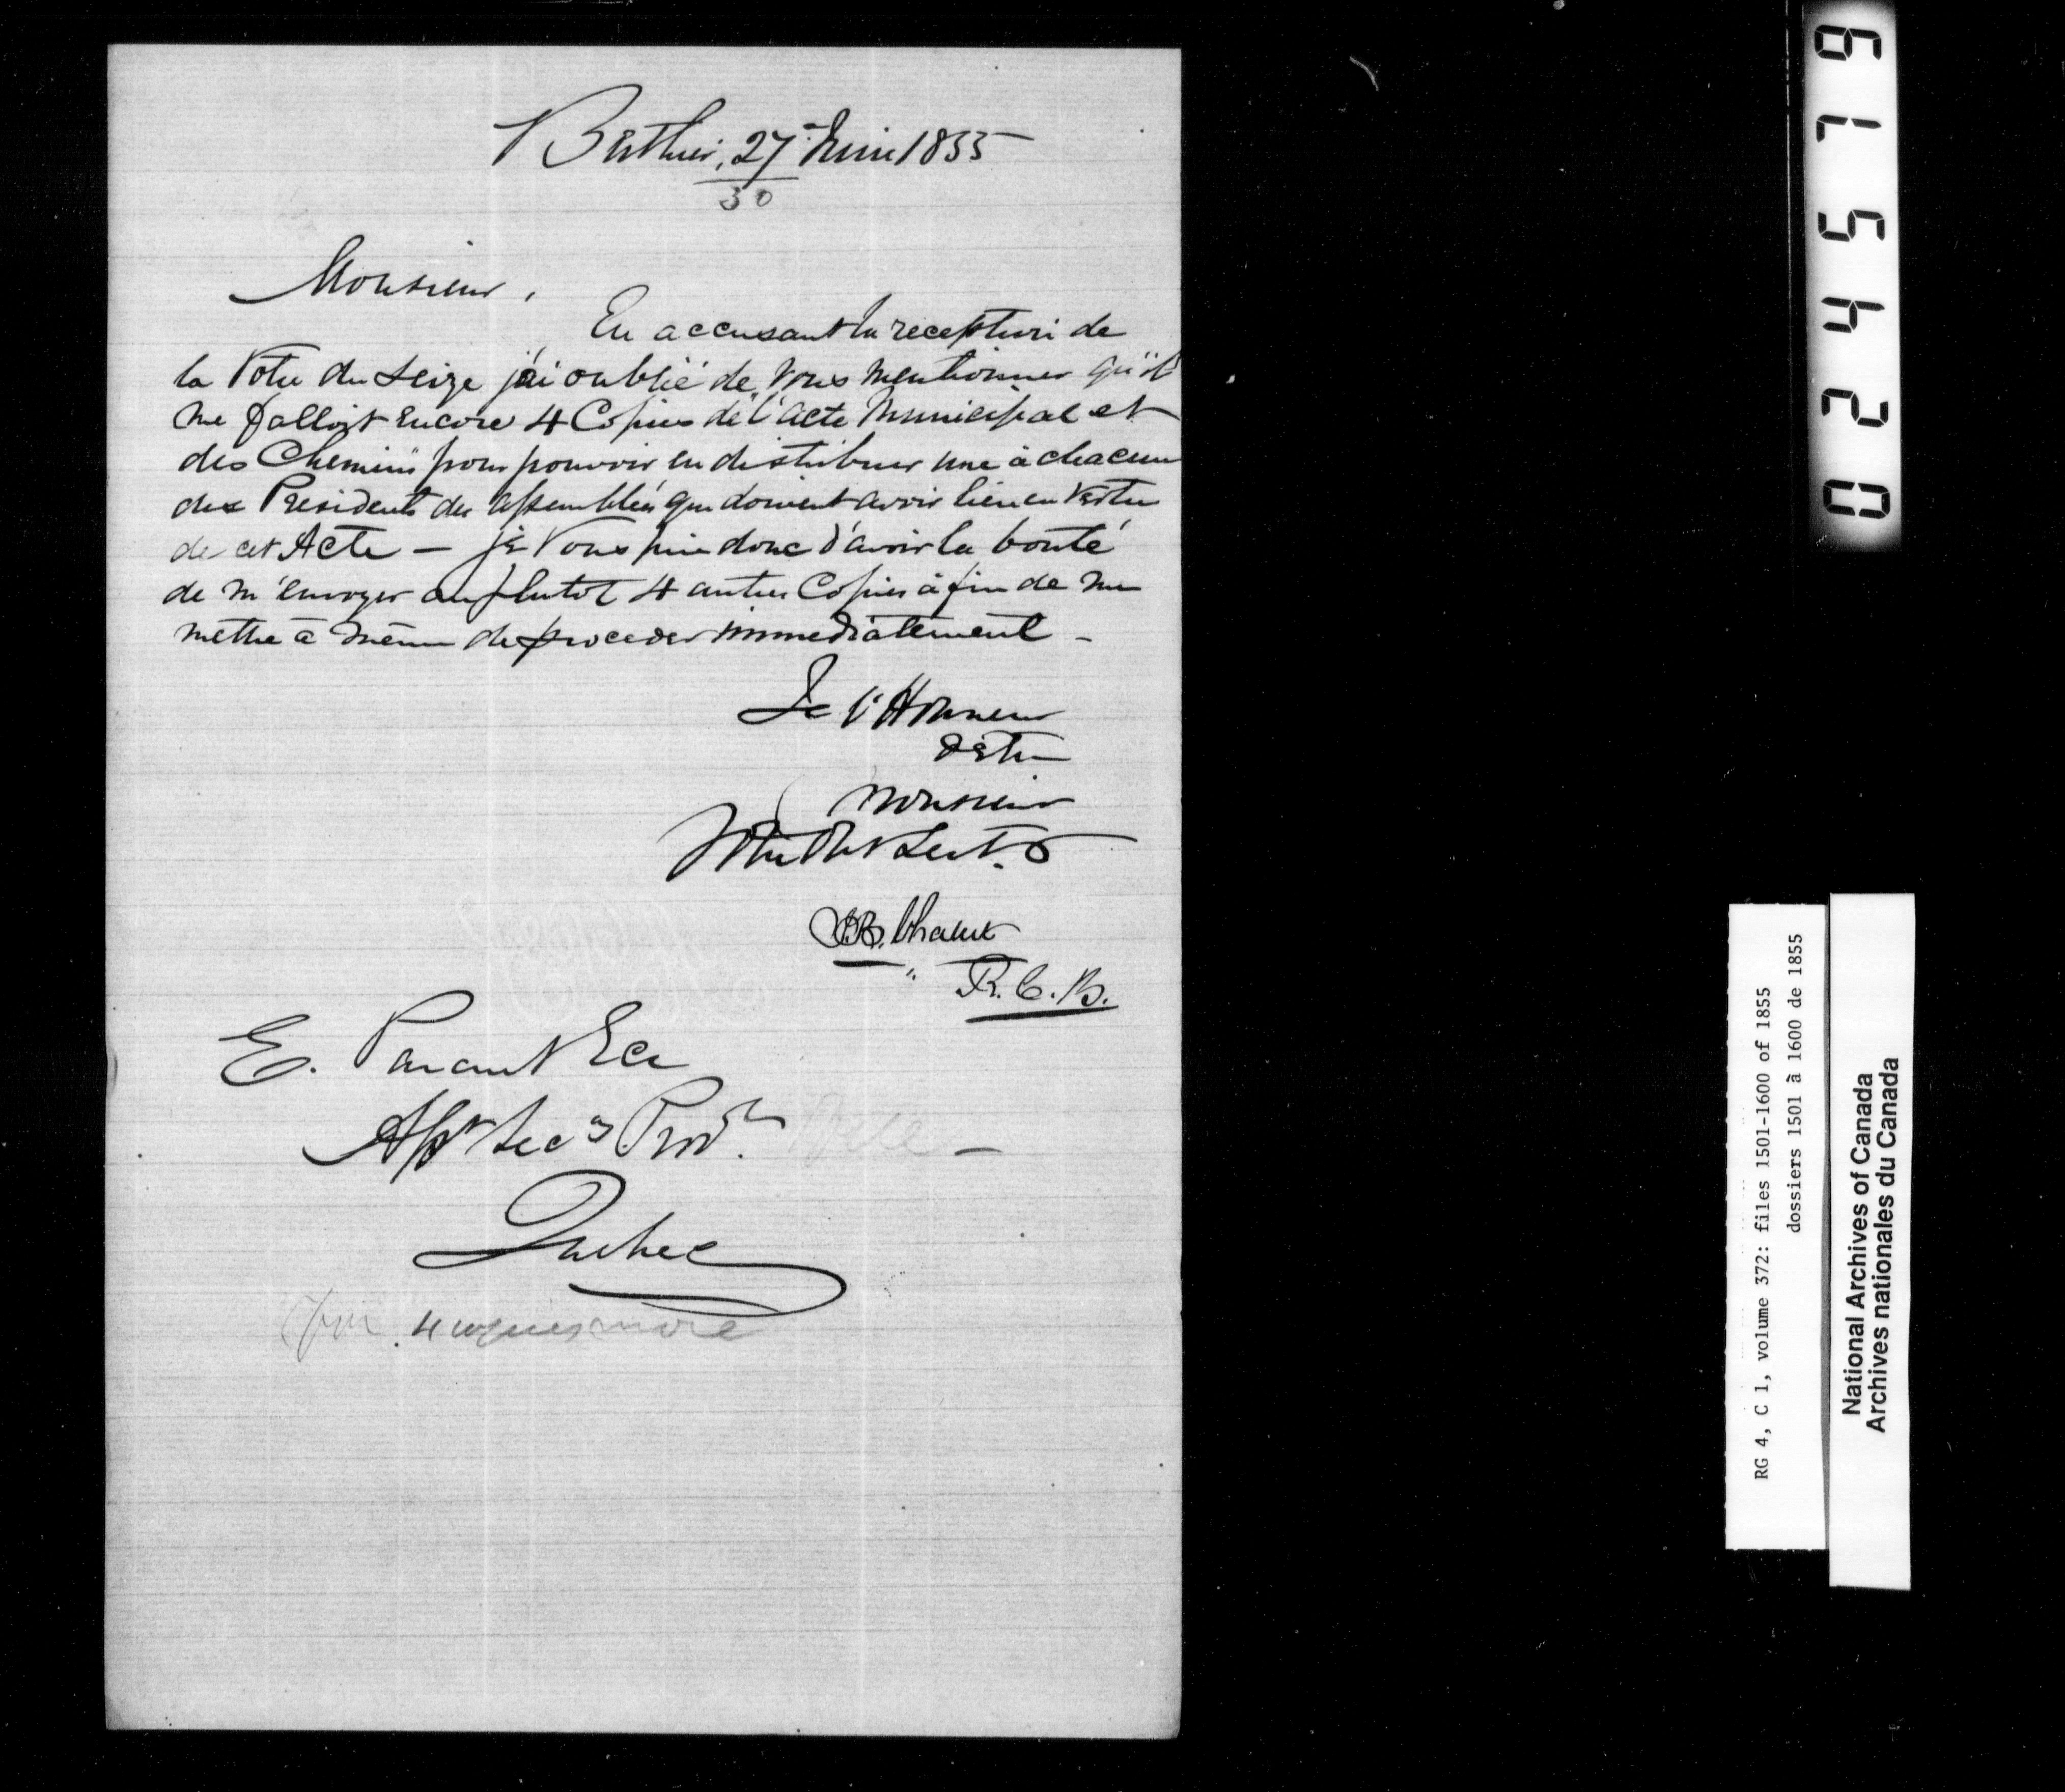 Berthier, 27 Juin 1855
30
Monsieur,
En accusant la reception de
la Votre du Seize j'ai oublié de Vous mentionner qu'il
me falloit encore 4 Copies de l'acte Municipal et
des Chemins pour pouvoir en distribuer une à chacun
des Presidents des assemblées qui doivent avoir lieu en vertu
de cet Acte — je Vous prie donc d'avoir la bonté
de m'envoyer au plutot 4 autres Copies à fin de me
mettre à même de proceder immediatement -
J'ai l'Honneur
d'etre
Monsieur
Votre Obt Sert.
R. C. B.
E. Parent Ecr
Asst Secy Prov.
Quebec
4 copies more
024579
RG 4, C 1, volume 372: files 1501-1600 of 1855
dossiers 1501 à 1600 de 1855
National Archives of Canada
Archives nationales du Canada